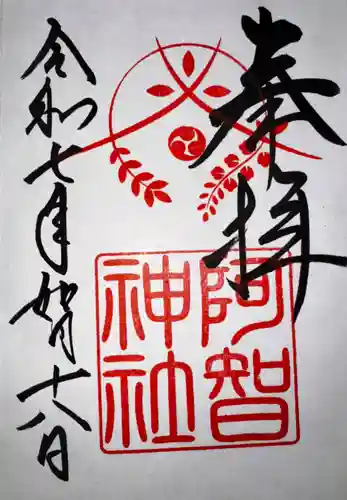 奉拝
阿智
神社
令和七年如月十八日